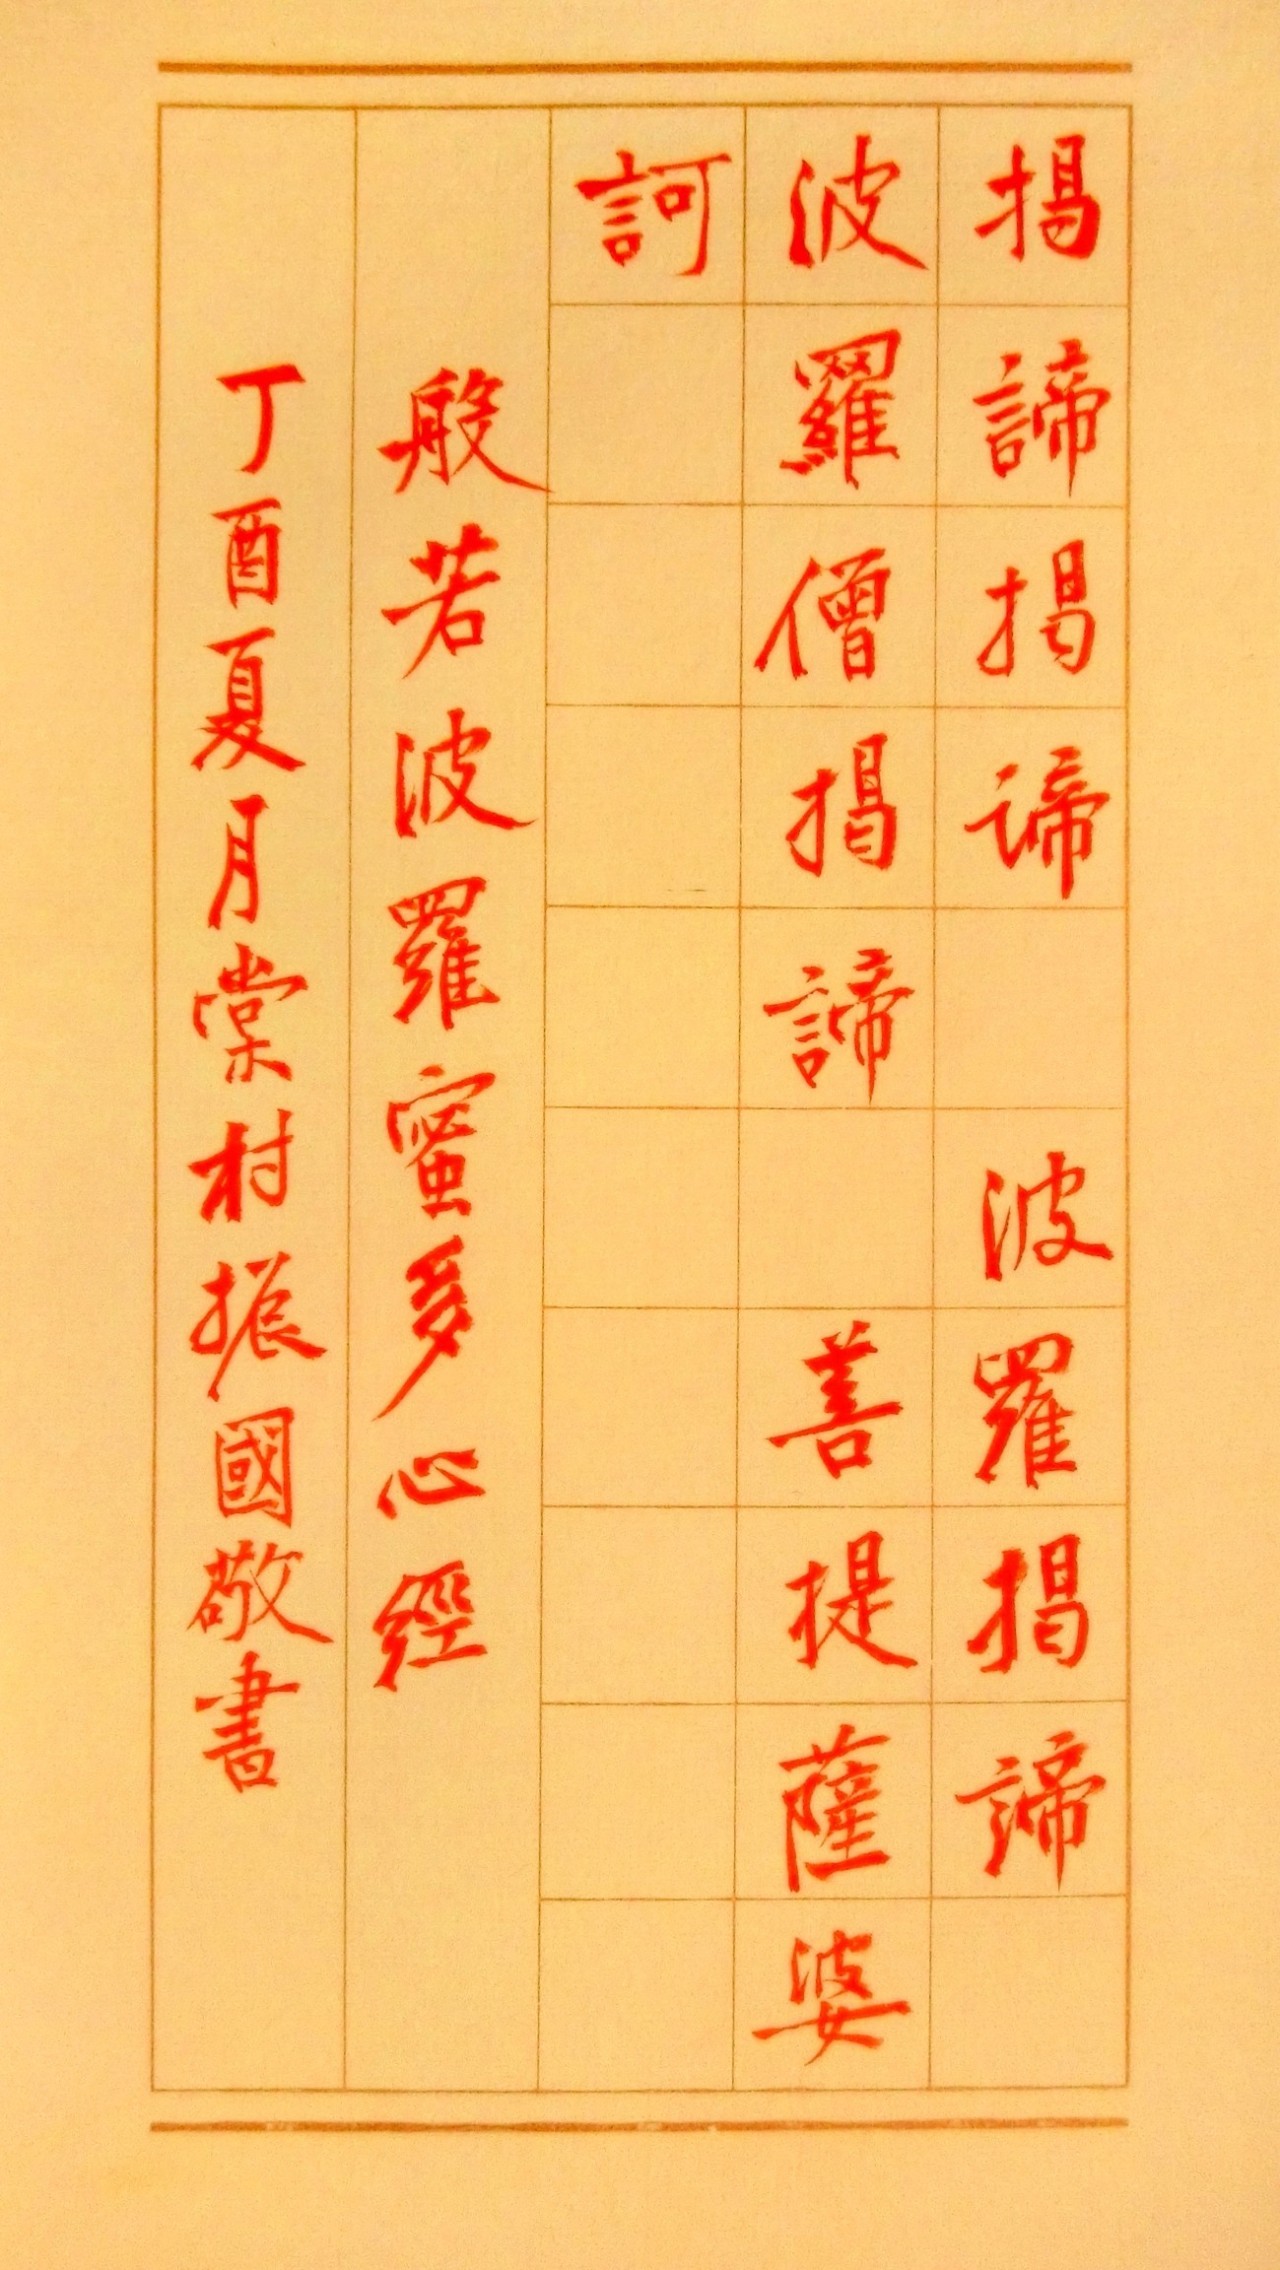 揭諦揭諦 波羅揭諦
波羅僧揭諦 菩提薩婆
訶
般若波羅蜜多心經
丁酉夏月棠村振國敬書